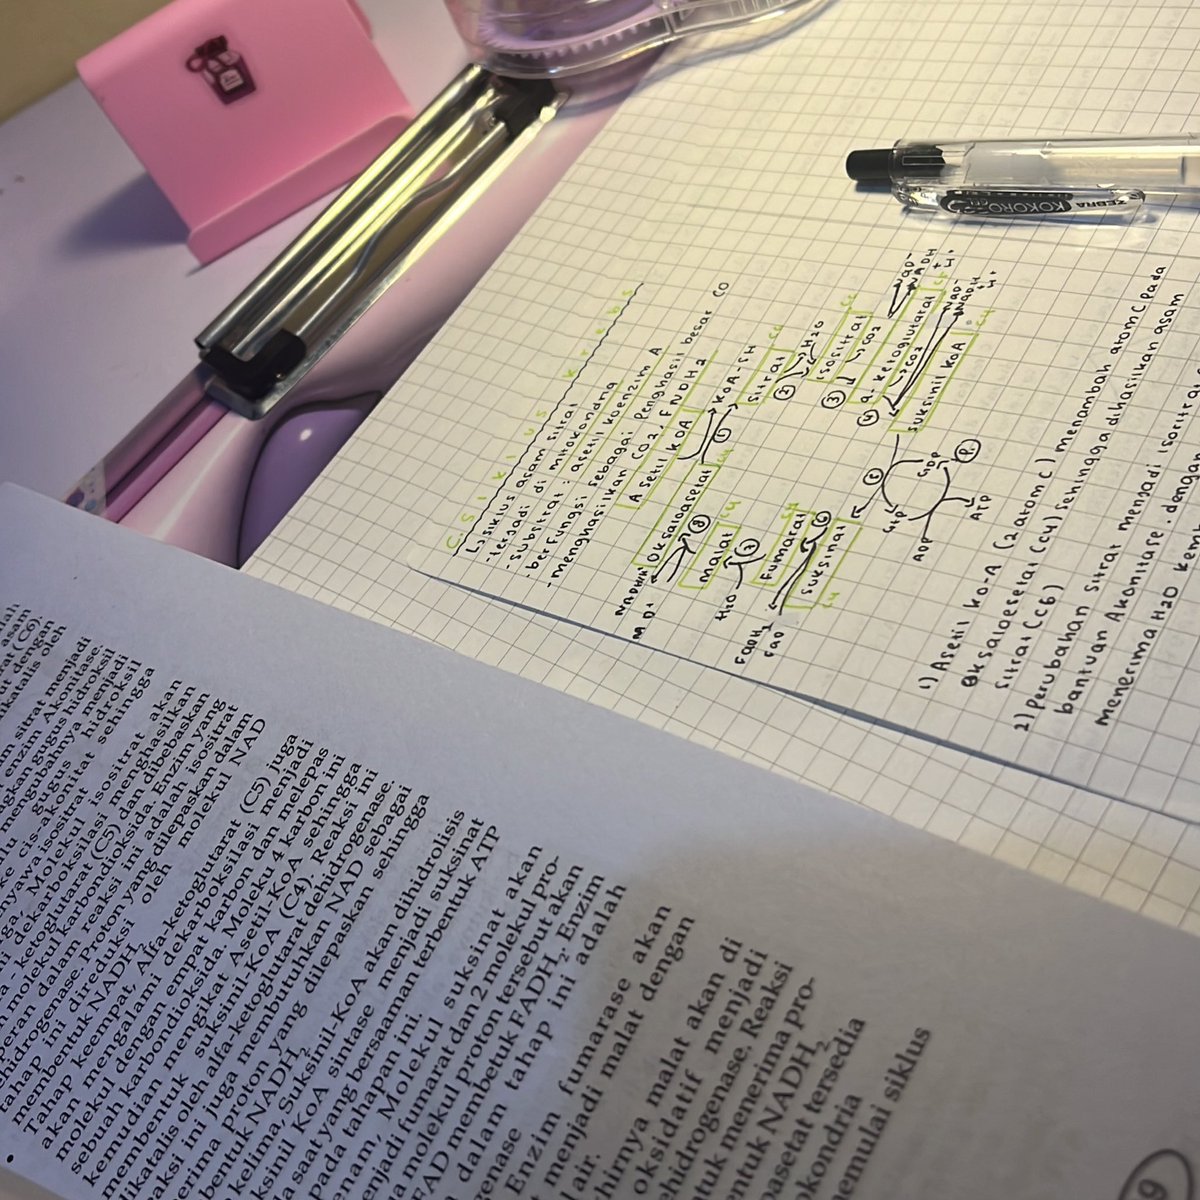 SIKLUS Krebs
↳ siklus asam sitrat
- terjadi di mitokondria
- substrat : asetil koenzim A
- berfungsi sebagai penghasil besar CO
- menghasilkan CO2, FNDH2
Asetil KOA
KOA-SH
NADH
Oksaloasetat
C4
①
Sitrat
C6
⑧
②
H2O
Malat
C4
Isositrat
C6
⑦
H2O
③
CO2
NAD-
NADH
+
H+
Fumarat
C4
α. ketoglutarat
C5
FADH2
FAD
⑥
④
CO2
NAD-
NADH
+
H+
Suksinat
C4
Suksinil KOA
C4
⑤
GTP
GDP
Pi
ADP
ATP
1) Asetil KO-A (2 atom C) menambah atom C pada
Oksaloasetat (C4) sehingga dihasilkan asam
Sitrat (C6)
2) Perubahan Sitrat menjadi Isositrat
bantuan Akonitase . dengan
menerima H2O kem
ZEBRA
KOKORO
asam
rat (C6)
ut dengan
katalis oleh
m sitrat menjadi
enzim Akonitase.
gkan gugus hidroksil
mengubahnya menjadi
cis-akonitat
gugus hidroksil
nyawa isositrat sehingga
Molekul isositrat akan
dekarboksilasi menghasilkan
ketoglutarat (C5) dan dibebaskan
molekul karbondioksida. Enzim yang
dalam reaksi ini adalah isositrat
hidrogenase. Proton yang dilepaskan dalam
tahap ini direduksi oleh molekul NAD
membentuk NADH2.
• Tahap keempat, Alfa-ketoglutarat (C5) juga
akan mengalami dekarboksilasi menjadi
molekul dengan empat karbon dan melepas
sebuah karbondioksida. Moleku 4 karbon ini
kemudian mengikat Asetil-KoA sehingga
membentuk suksinil-KoA (C4). Reaksi ini
ikatalis oleh alfa-ketoglutarat dehidrogenase.
aksi ini juga membutuhkan NAD sebagai
erima proton yang dilepaskan sehingga
bentuk NADH2.
kelima, Suksinil-KoA akan dihidrolisis
ksinil KoA sintase menjadi suksinat
a saat yang bersamaan terbentuk ATP
pada tahapan ini.
nam, Molekul suksinat akan
enjadi fumarat dan 2 molekul pro-
a molekul proton tersebut akan
FAD membetuk FADH2. Enzim
dalam tahap ini adalah
genase
Enzim fumarase akan
t menjadi malat dengan
l air.
hirnya malat akan di
oksidatif menjadi
ehidrogenase. Reaksi
tuk menerima pro-
entuk NADH2
pasetat tersedia
okondria
emulai siklus
9